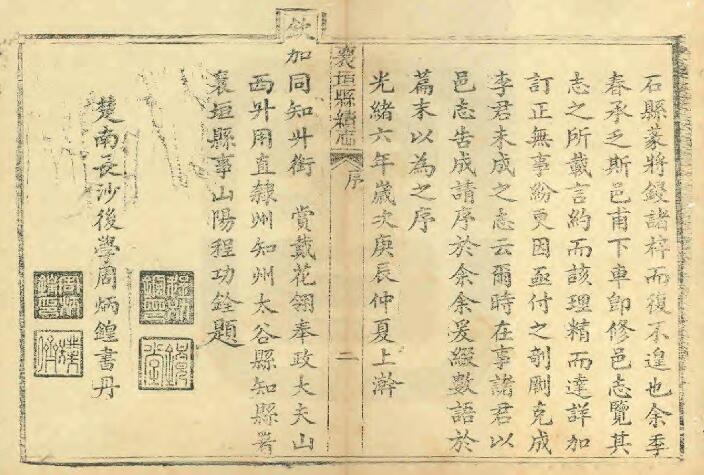 石縣篆將鋟諸梓而復不遑也余季
春承乏斯邑甫下車卽修邑志覽其
志之所載言約而該理精而達詳加
訂正無事紛更因亟付之剞劂克成
李君未成之志云爾時在事諸君以
邑志告成請序於余余爰綴數語於
篇末以為之序
光緒六年歲次庚辰仲夏上澣
襄垣縣續志
序
二
欽加同知升銜 賞戴花翎奉政大夫山
西升用直隸州知州太谷縣知縣署
襄垣縣事山陽程功銓題
楚南長沙後學周炳鍠書丹